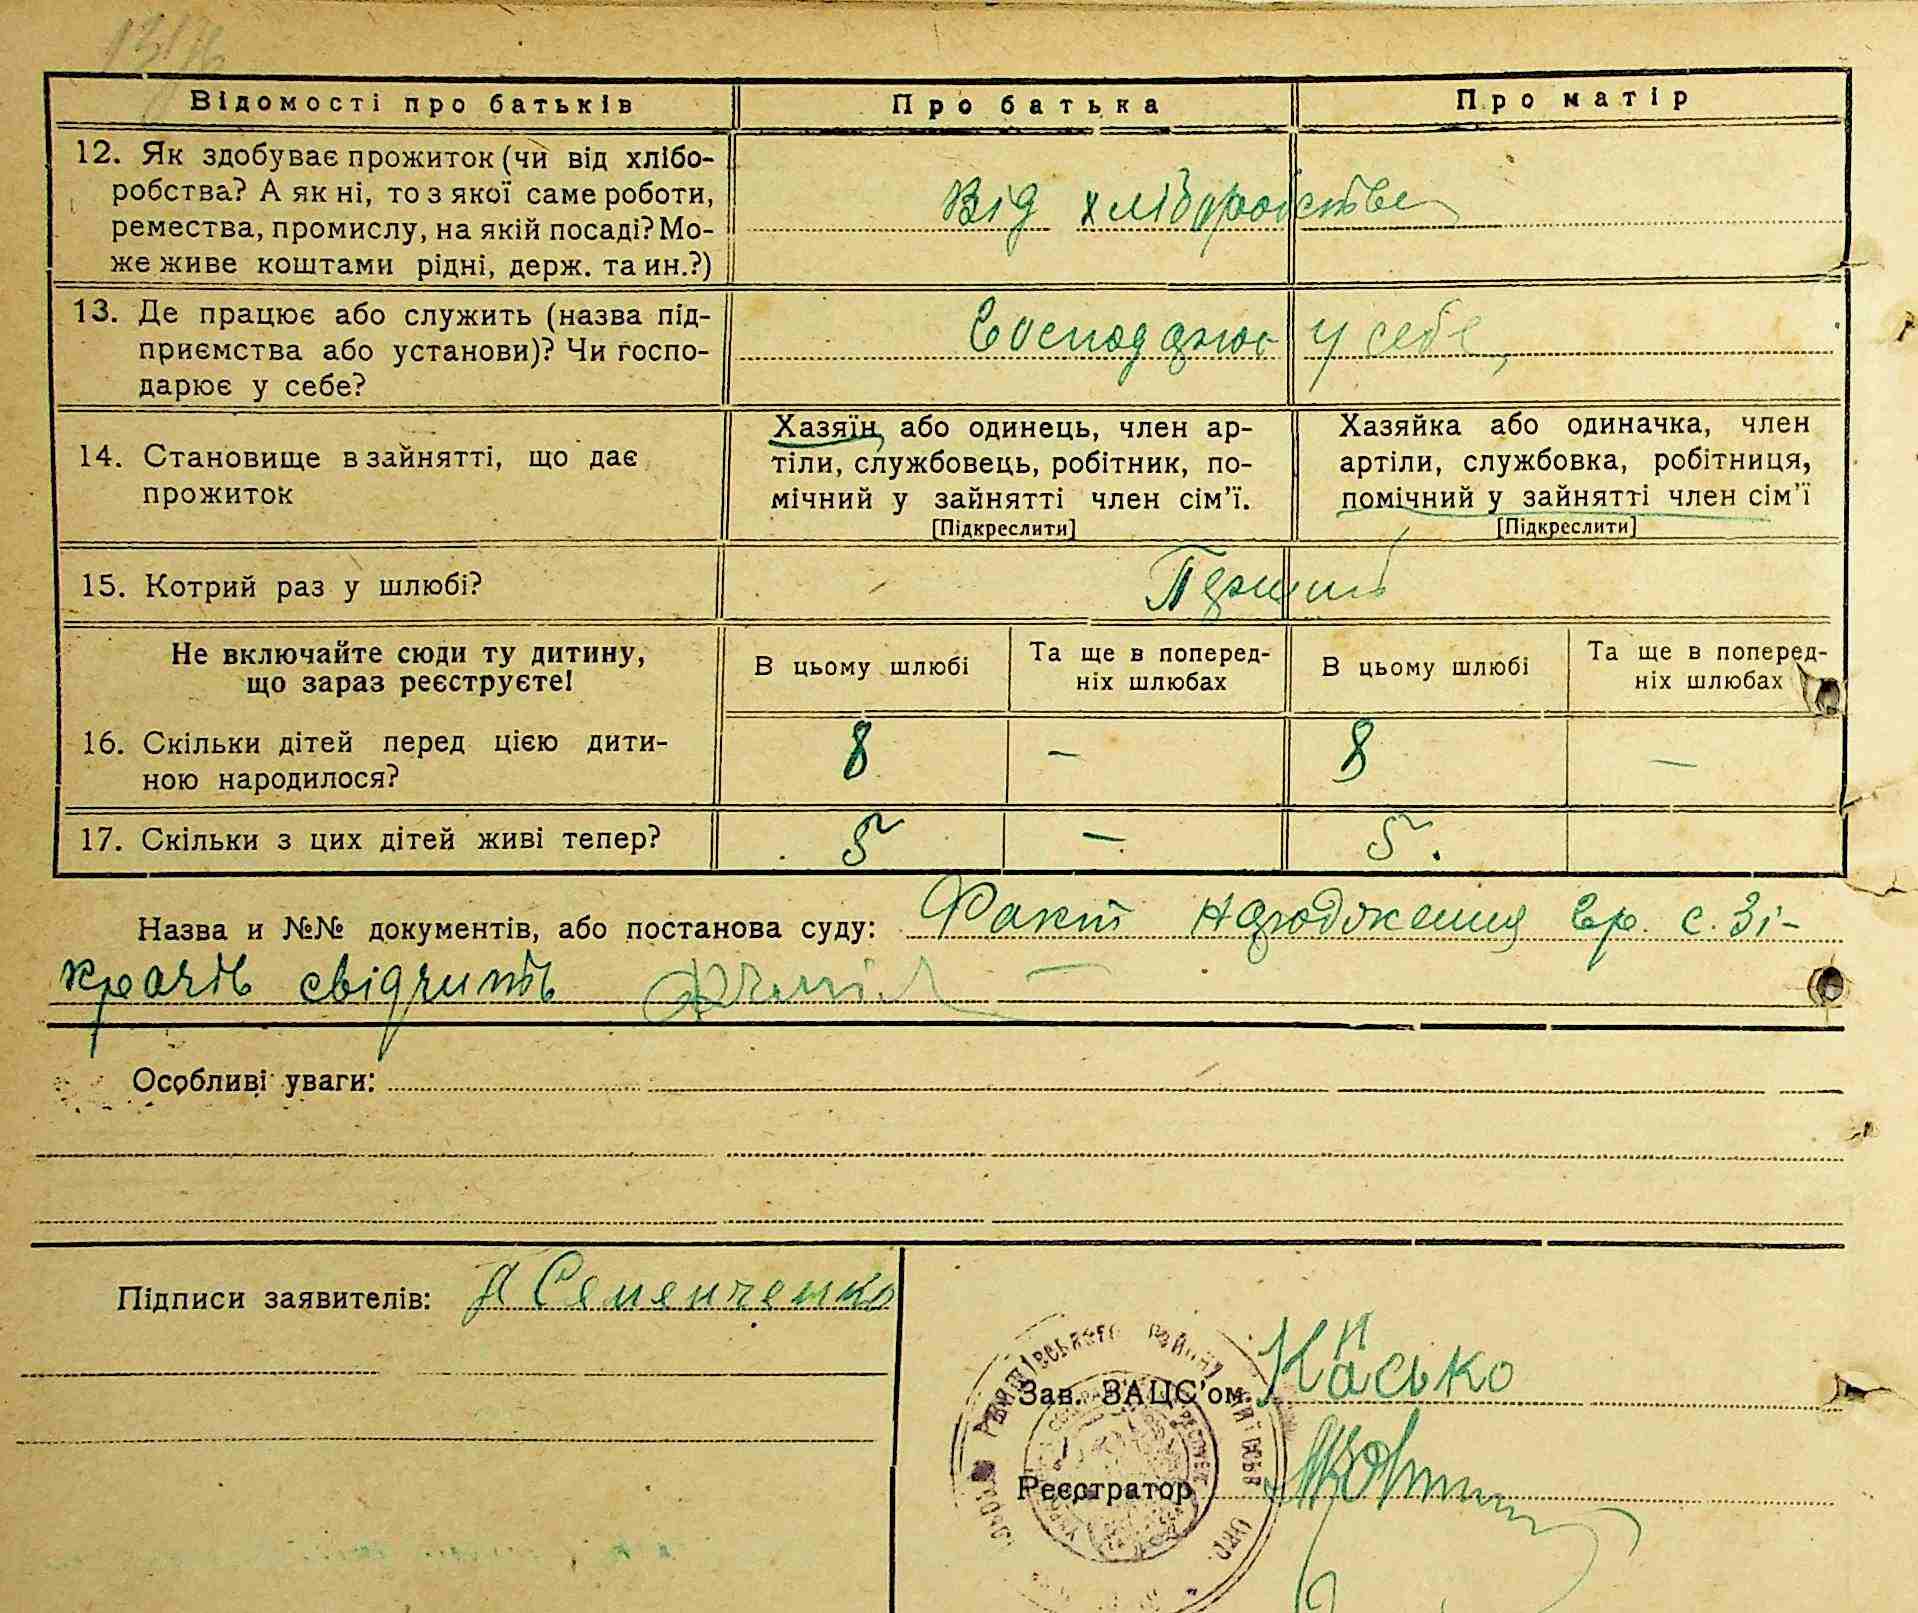 Відомості про батьків
Про батька
Про матір
12. Як здобуває прожиток (чи від хлібо-
робства? А як ні, то з якої саме роботи,
ремества, промислу, на якій посаді? Мо-
же живе коштами рідні, держ. та ин.?)
Від хліборобства
13. Де працює або служить (назва під-
приємства або установи)? Чи госпо-
дарює у себе?
у себе,
14. Становище в зайнятті, що дає
прожиток
Хазяїн або одинець, член ар-
тіли, службовець, робітник, по-
мічний у зайнятті член сім'ї.
[Підкреслити]
Хазяйка або одиначка, член
артіли, службовка, робітниця,
помічний у зайнятті член сім'ї
[Підкреслити]
15. Котрий раз у шлюбі?
Не включайте сюди ту дитину,
що зараз реєструєте!
В цьому шлюбі
Та ще в поперед-
ніх шлюбах
В цьому шлюбі
Та ще в поперед-
ніх шлюбах
16. Скільки дітей перед цією дити-
ною народилося?
8 – 8 –
17. Скільки з цих дітей живі тепер?
5 – 5.
Назва и №№ документів, або постанова суду: Факт народження гр. с. Зі-
крачів свідчить
Особливі уваги:
Підписи заявителів: Семенченко
Зав. ЗАЦС'ом Касько
Реєстратор